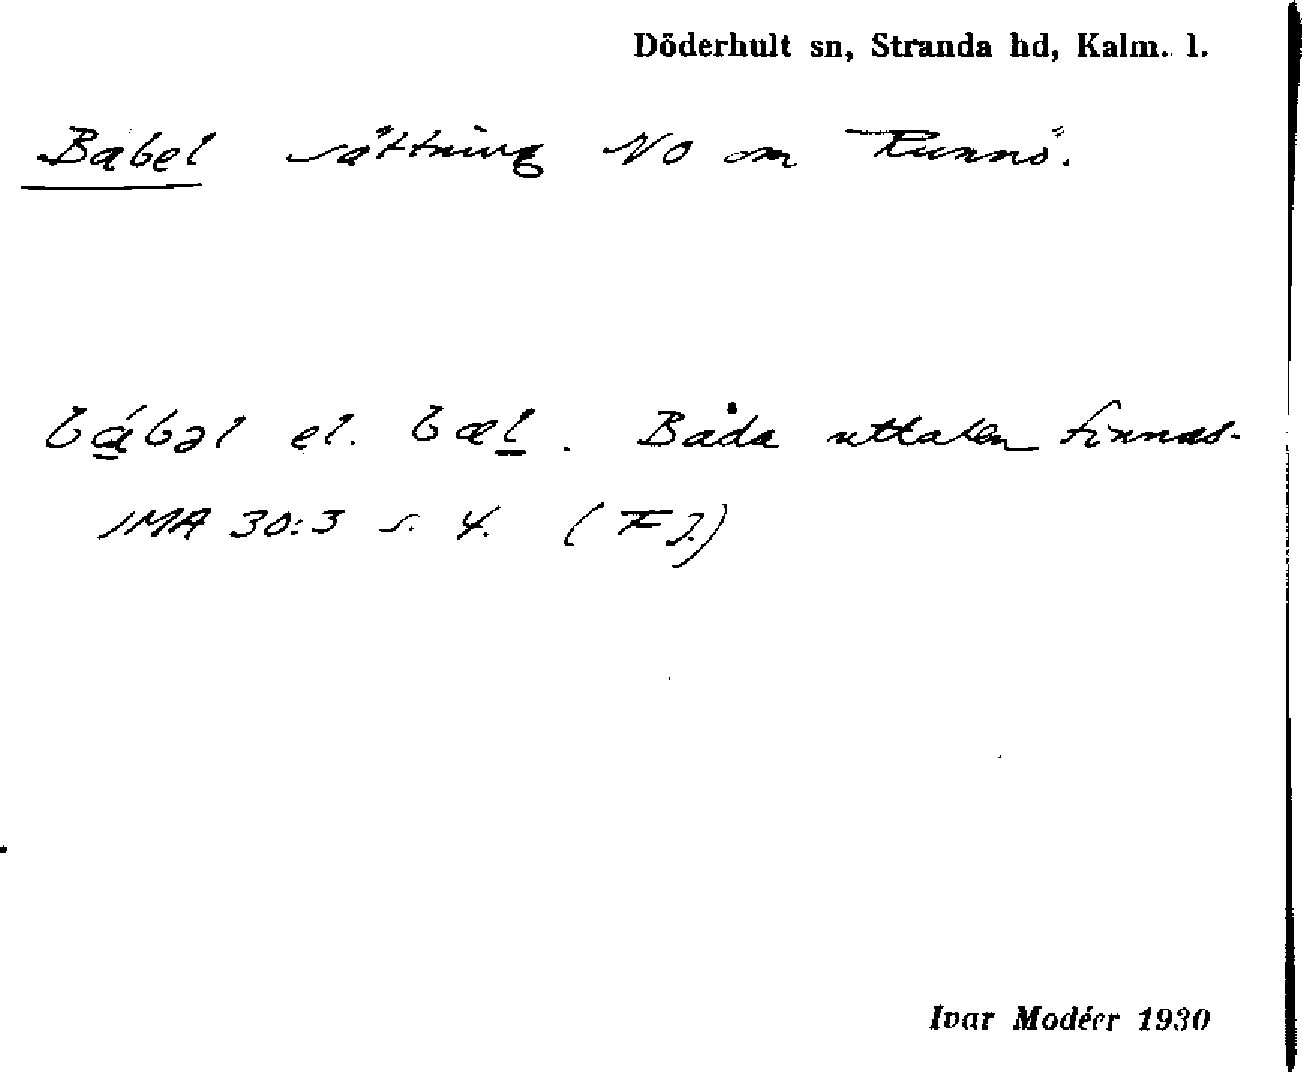 Döderhult sn, Stranda hd, Kalm. l.
Babel sättning NO om Runnö.
bábəl el. bæl. Båda uttalen finnas.
IMA 30:3 s. 4. (FJ.)
Ivar Modéer 1930